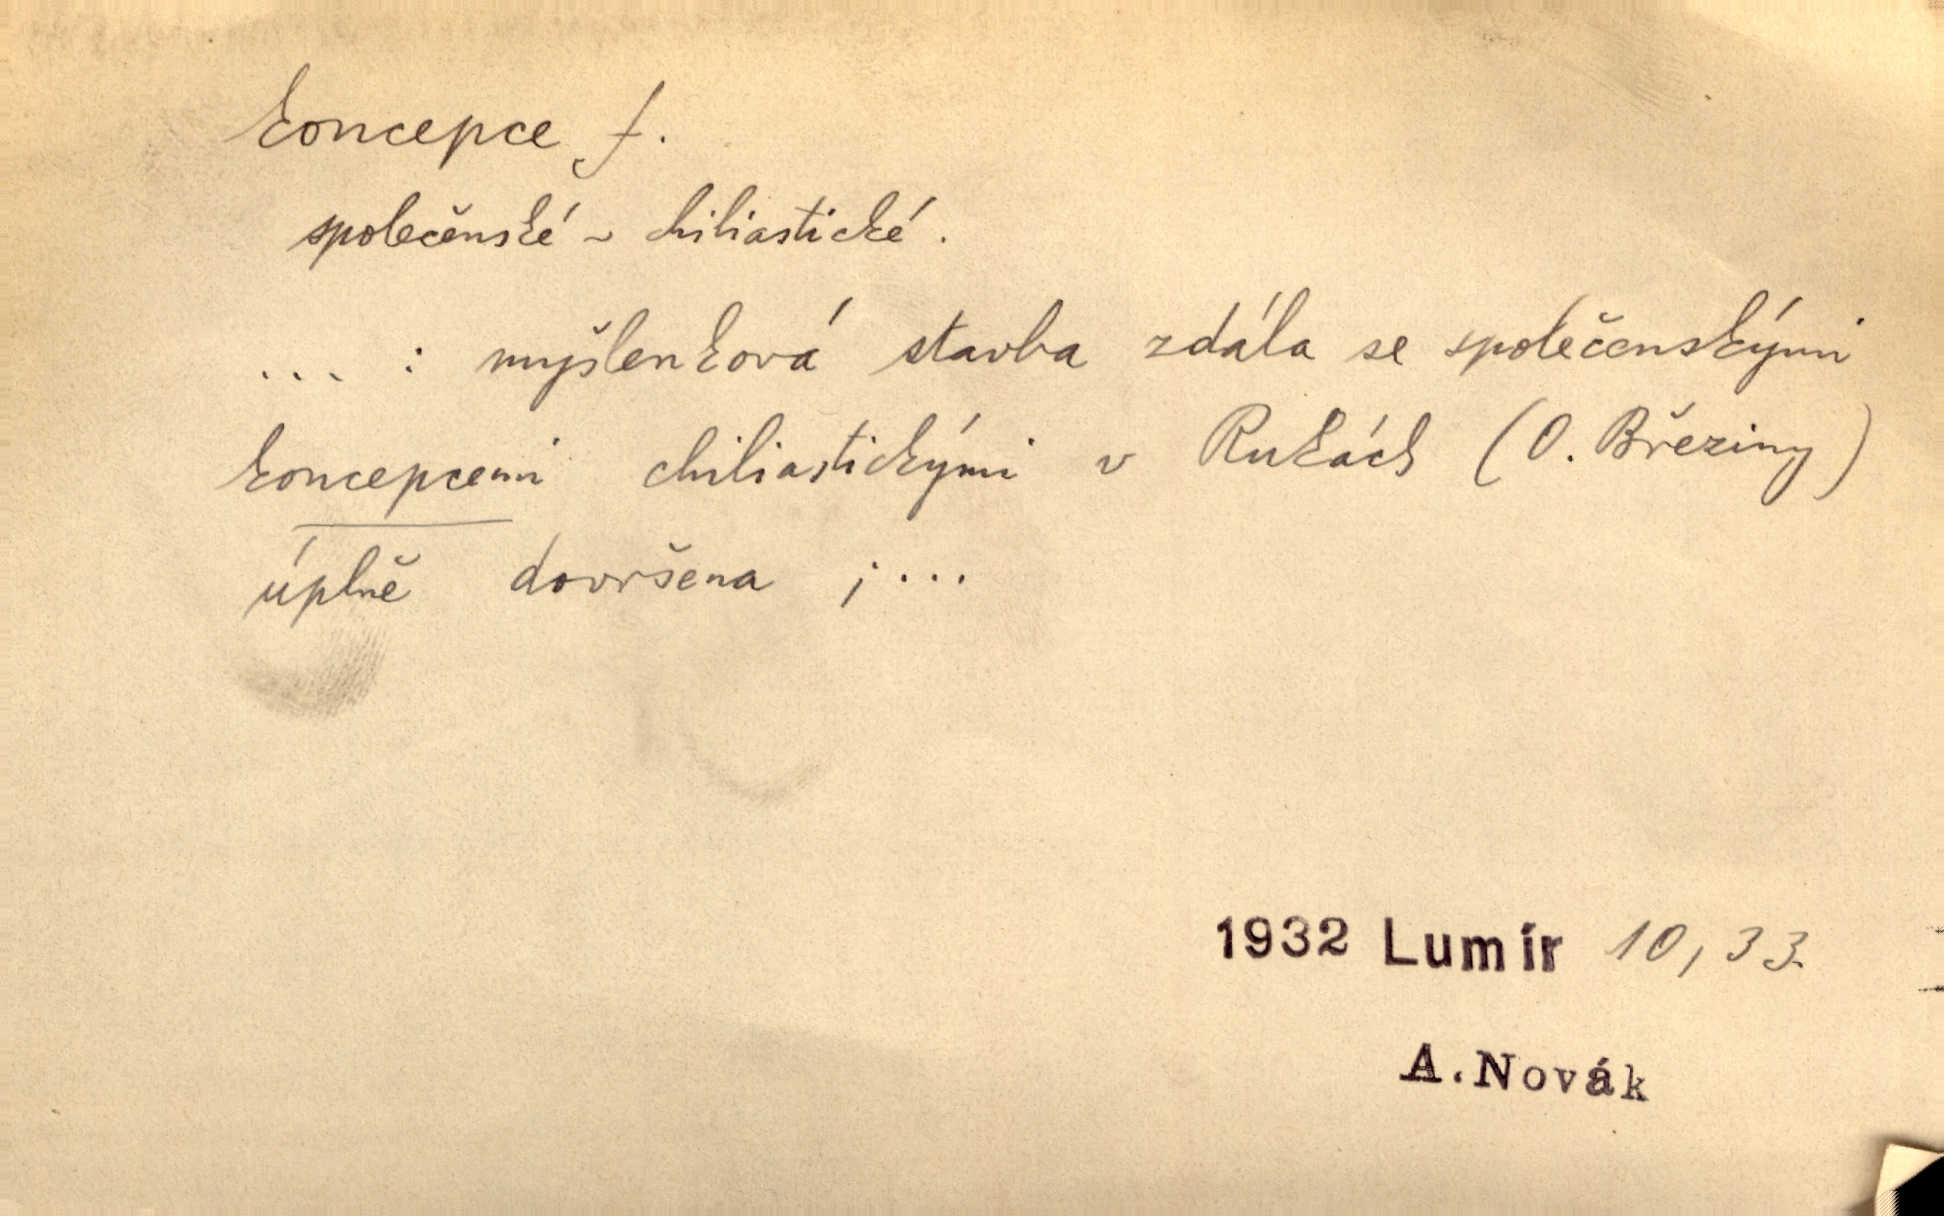 koncepce f.
společenské ~ chiliastické.
... : myšlenková stavba zdála se společenskými
koncepcemi chiliastickými v Rukách (O. Březiny)
úplně dovršena ; ...
1932 Lumír 10, 33.
A. Novák